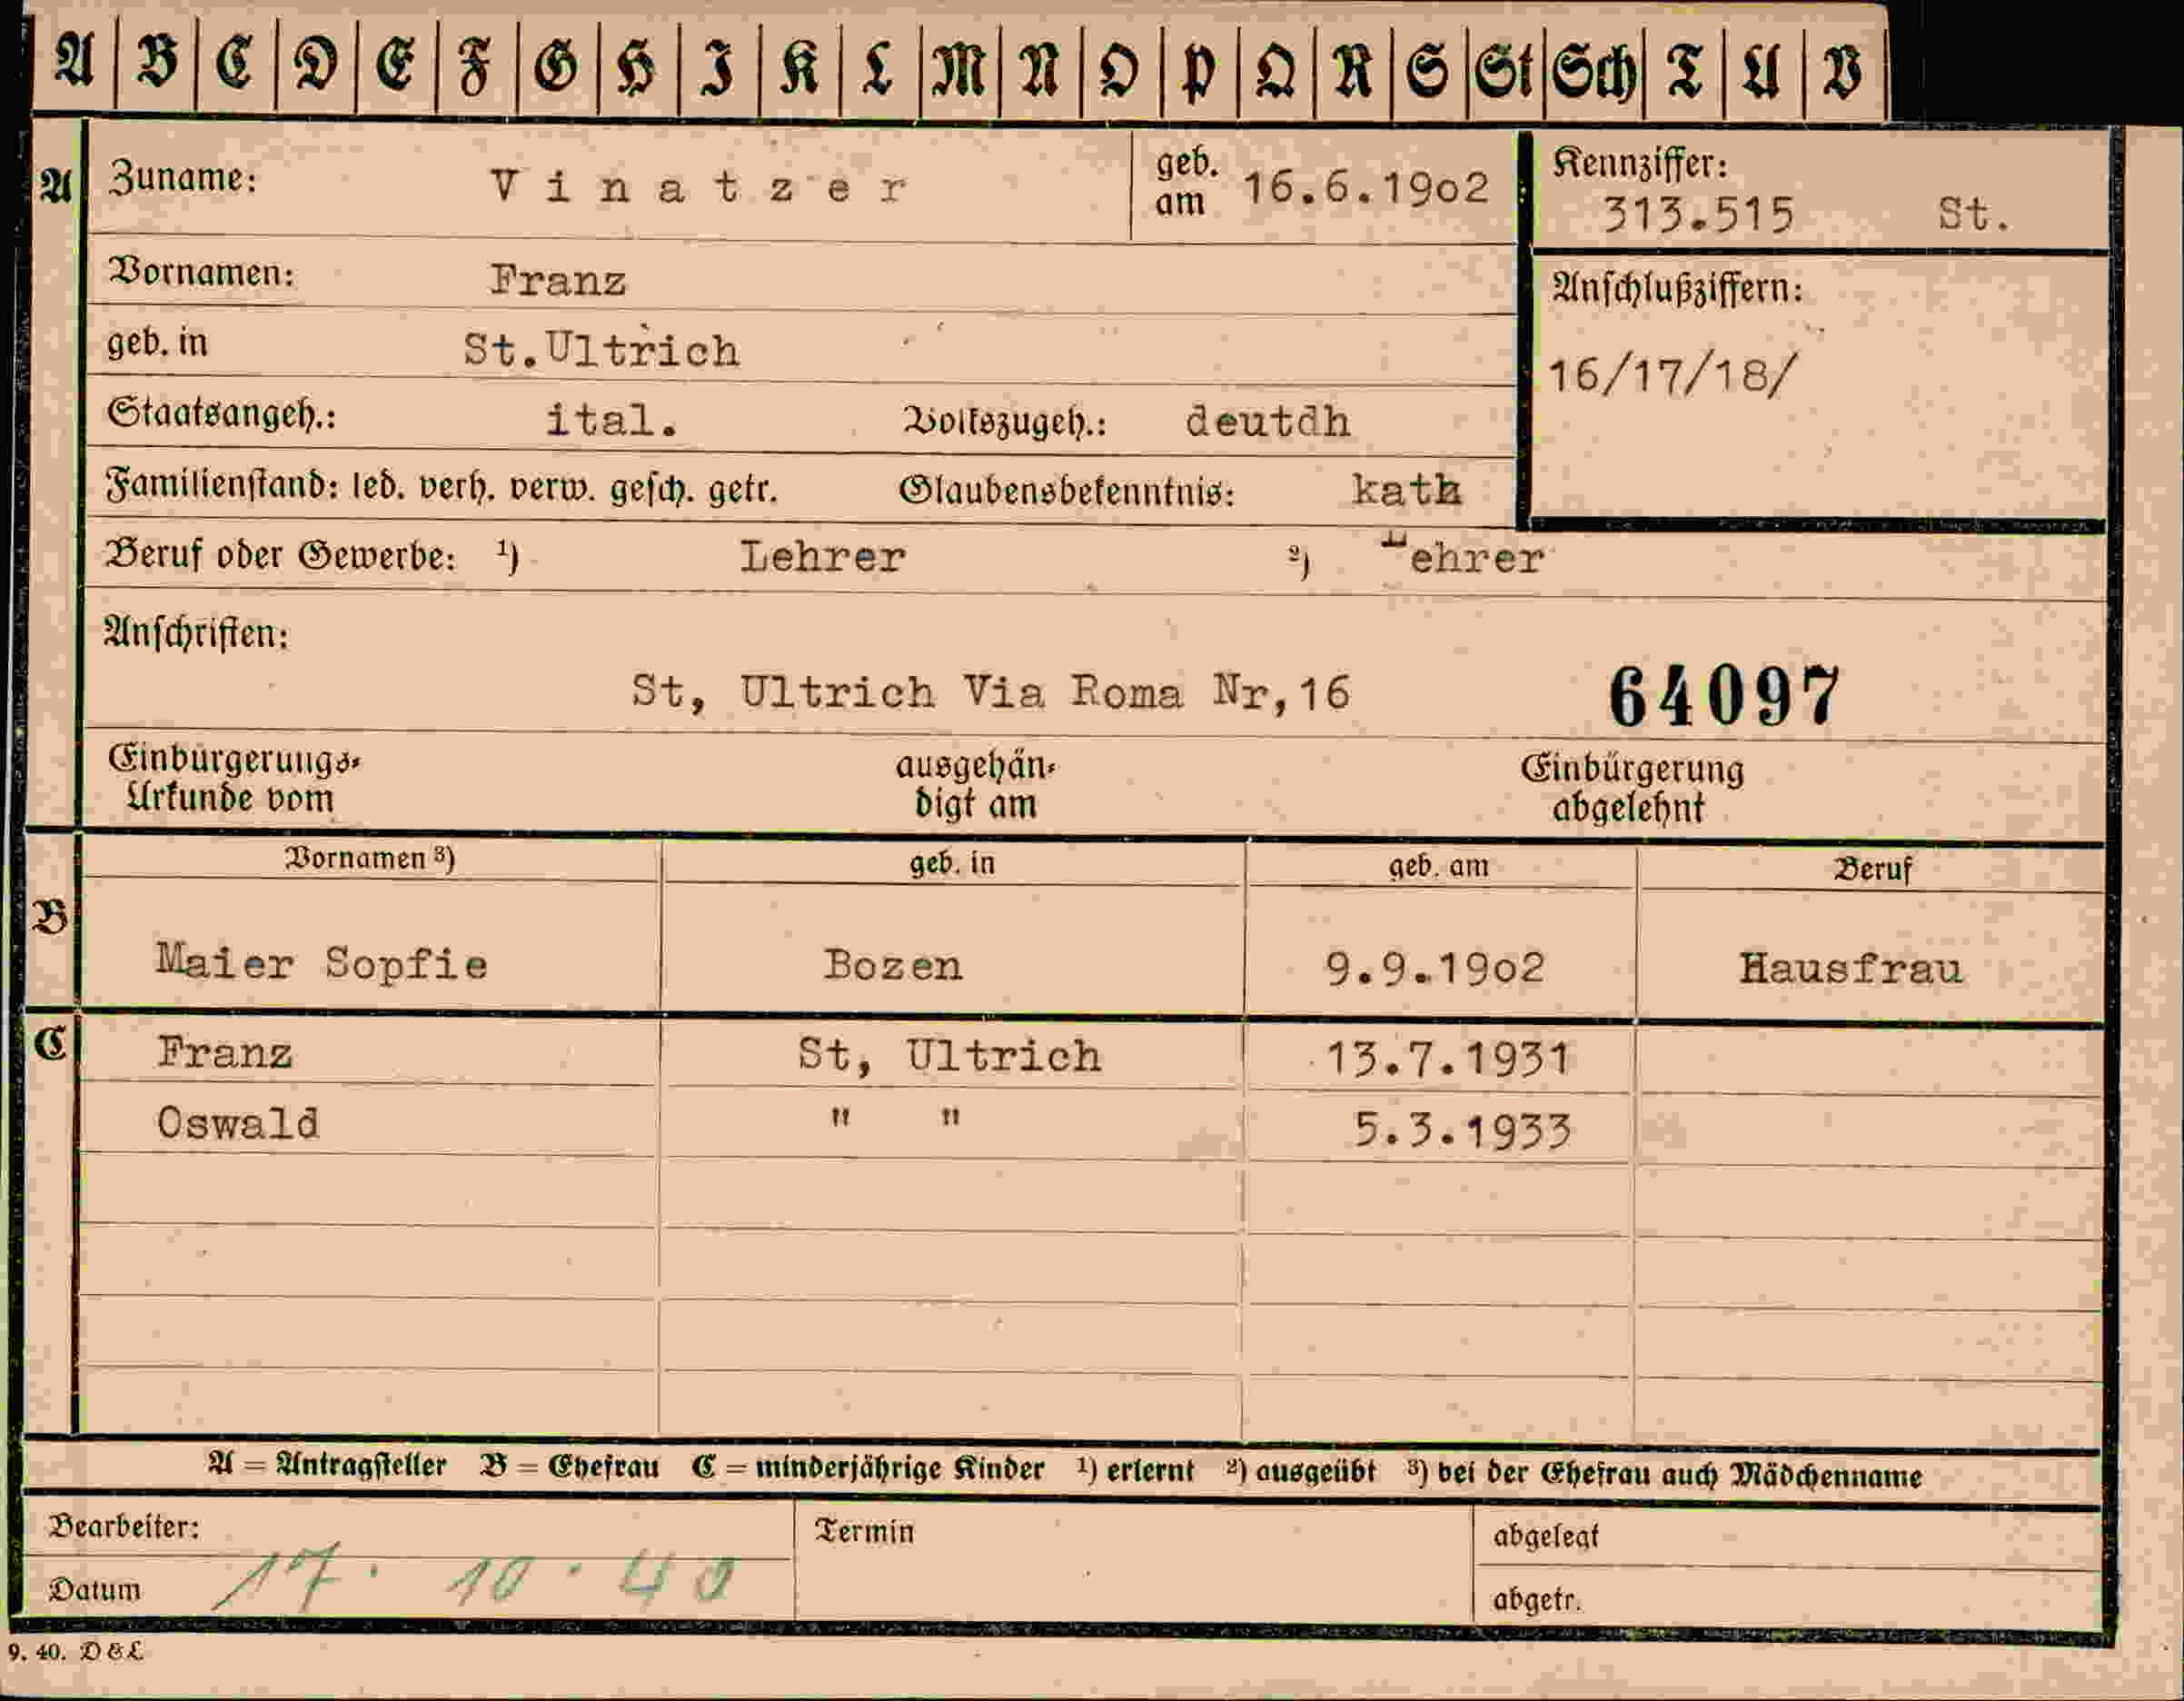 A B C D E F G H I K L M N O P Q R S St Sch T U V
A Zuname: Vinatzer geb. am 16.6.19o2 Kennziffer: 313.515 St.
Vornamen: Franz
Anschlußziffern:
geb. in St.Ultrich
16/17/18/
Staatsangeh.: ital. Volkszugeh.: deutdh
Familienstand: led. verh. verw. gesch. getr. Glaubensbekenntnis: kath
Beruf oder Gewerbe: ¹) Lehrer ²) Lehrer
Anschriften:
St, Ultrich Via Roma Nr,16 64097
Einbürgerungs- ausgehän- Einbürgerung
Urkunde vom digt am abgelehnt
Vornamen ³) geb. in geb. am Beruf
B
Maier Sopfie Bozen 9.9.19o2 Hausfrau
C Franz St, Ultrich 13.7.1931
Oswald " " 5.3.1933
A = Antragsteller B = Ehefrau C = minderjährige Kinder ¹) erlernt ²) ausgeübt ³) bei der Ehefrau auch Mädchenname
Bearbeiter: Termin abgelegt
Datum 17. 10. 40 abgetr.
9. 40. D & L